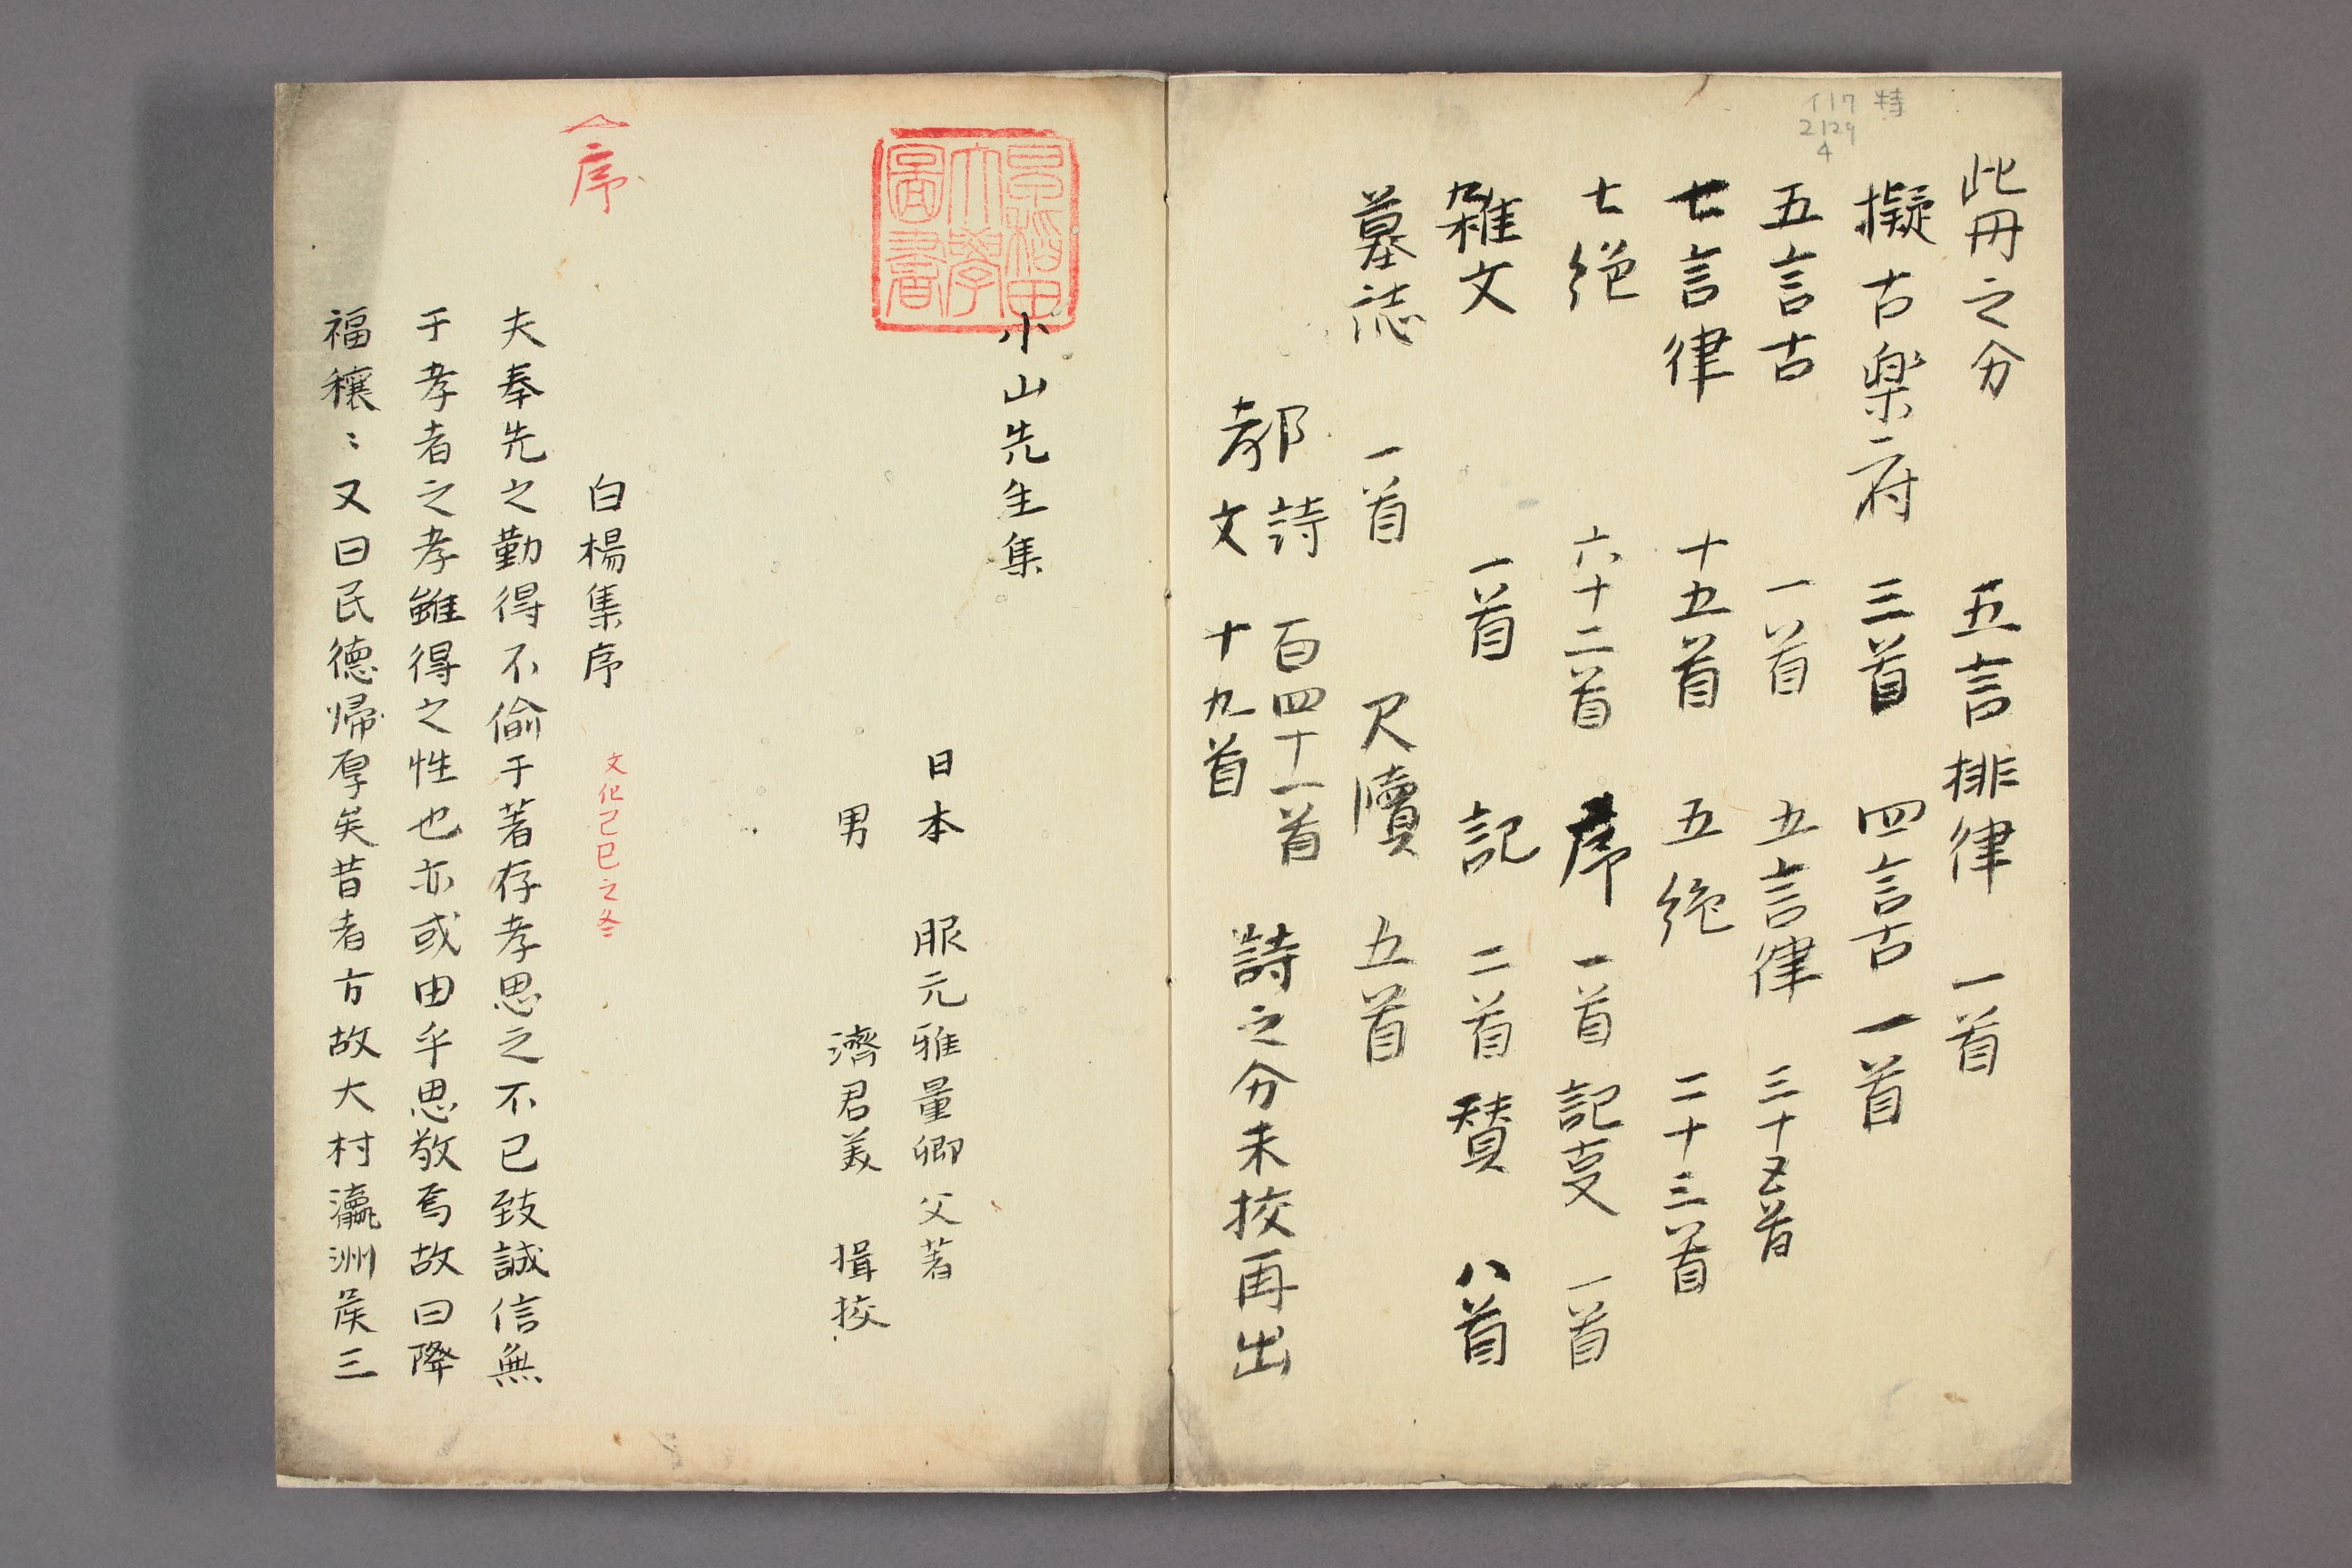 特
イ17
2129
4
此冊之分 五言排律 一首
擬古楽府 三首 四言古 一首
五言古 一首 五言律 三十五首
七言律 十五首 五絶 二十三首
七絶 六十二首 序 一首 記事 一首
雑文 一首 記 二首 賛 八首
墓誌 一首 尺牘 五首
都 詩 百四十一首
文 十九首
詩之分未挍再出
早稲田大學圖書
小山先生集
日本 服元雅量卿父著
男 濟君美 揖挍
序
白楊集序 文化己巳之冬
夫奉先之勤得不偷于著存孝思之不已致誠信無
于孝者之孝雖得之性也亦或由乎思敬焉故曰降
福穰〻又曰民德帰厚矣昔者方故大村瀛洲矦三